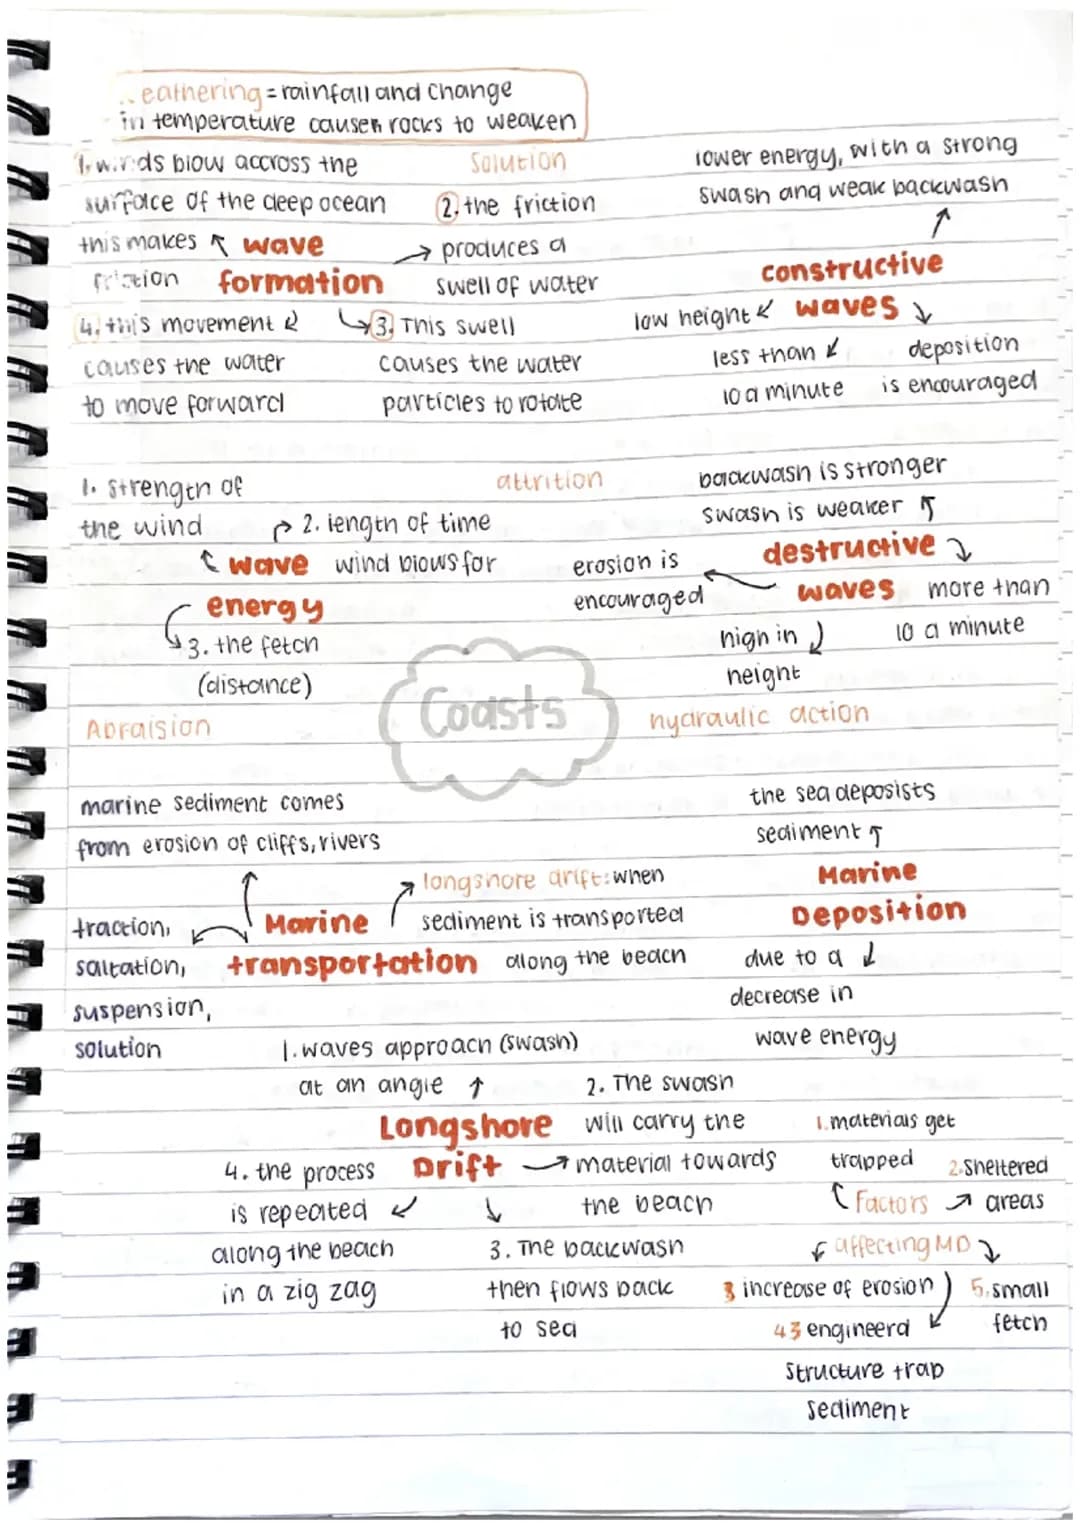 eathering = rainfall and change
in temperature causes rocks to weaken
1. winds blow accross the
surface of the deep ocean
this makes
friction
wave
formation
Solution
2. the friction
produces a
swell of water
3. This swell
causes the water
particles to rotate
4. this movement
causes the water
to move forward
lower energy, with a strong
swash and weak backwash
constructive
waves
low height
less than
10 a minute
deposition
is encouraged
1. strength of
the wind
2. length of time
wind blows for
wave
energy
3. the fetch
(distance)
attrition
backwash is stronger
swash is weaker
destructive
waves
erosion is
encouraged
more than
10 a minute
high in
height
Abraision
Coasts
hydraulic action
marine sediment comes
from erosion of cliffs, rivers
longshore drift: when
sediment is transported
along the beach
Marine
transportation
traction,
saltation,
suspension,
solution
the sea deposists
sediment
Marine
Deposition
due to a
decrease in
wave energy
1. waves approach (swash)
at an angle
Longshore
Drift
2. The swash
will carry the
material towards
the beach
3. The backwash
then flows back
to sea
4. the process
is repeated
along the beach
in a zig zag
1. materials get
trapped
2. Sheltered
areas
Factors
affecting MD
3 increase of erosion
5. small
fetch
43 engineerd
structure trap
sediment